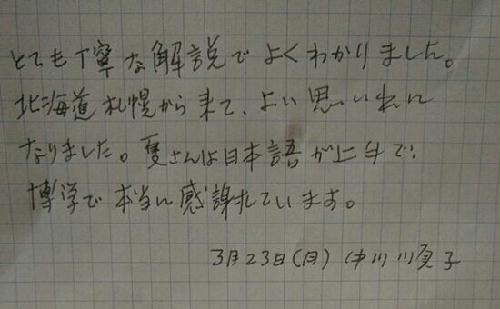 とても丁寧な解説でよくわかりました。
北海道札幌から来て、よい思い出に
なりました。隻さんは日本語が上手で、
博学で本当に感謝しています。
3月23日(月) 中川順子